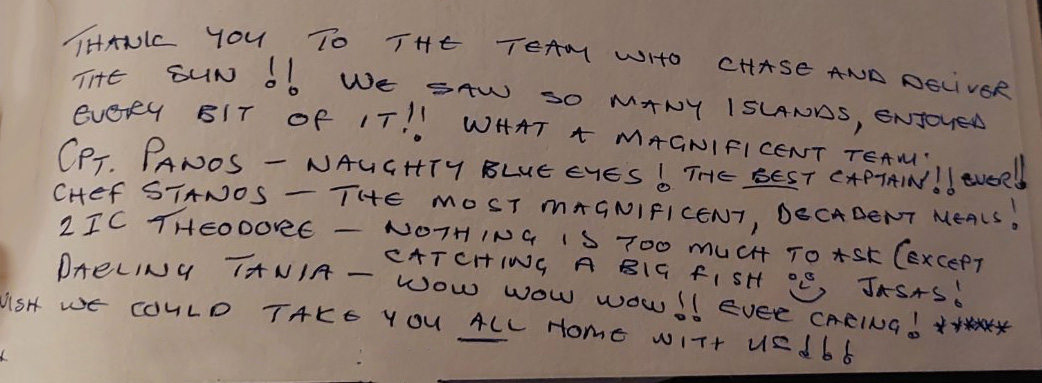 THANK YOU TO THE TEAM WHO CHASE AND DELIVER
THE SUN!! WE SAW SO MANY ISLANDS, ENJOYED
EVERY BIT OF IT!! WHAT A MAGNIFICENT TEAM.
CPT. PANOS - NAUGHTY BLUE EYES! THE BEST CAPTAIN!! EVER!!
CHEF STANOS - THE MOST MAGNIFICENT, DECADENT MEALS!
2IC THEODORE - NOTHING IS TOO MUCH TO ASK (EXCEPT
CATCHING A BIG FISH JASAS!
DARLING TANIA - WOW WOW WOW!! EVER CARING! *****
WISH WE COULD TAKE YOU ALL HOME WITH US!!!